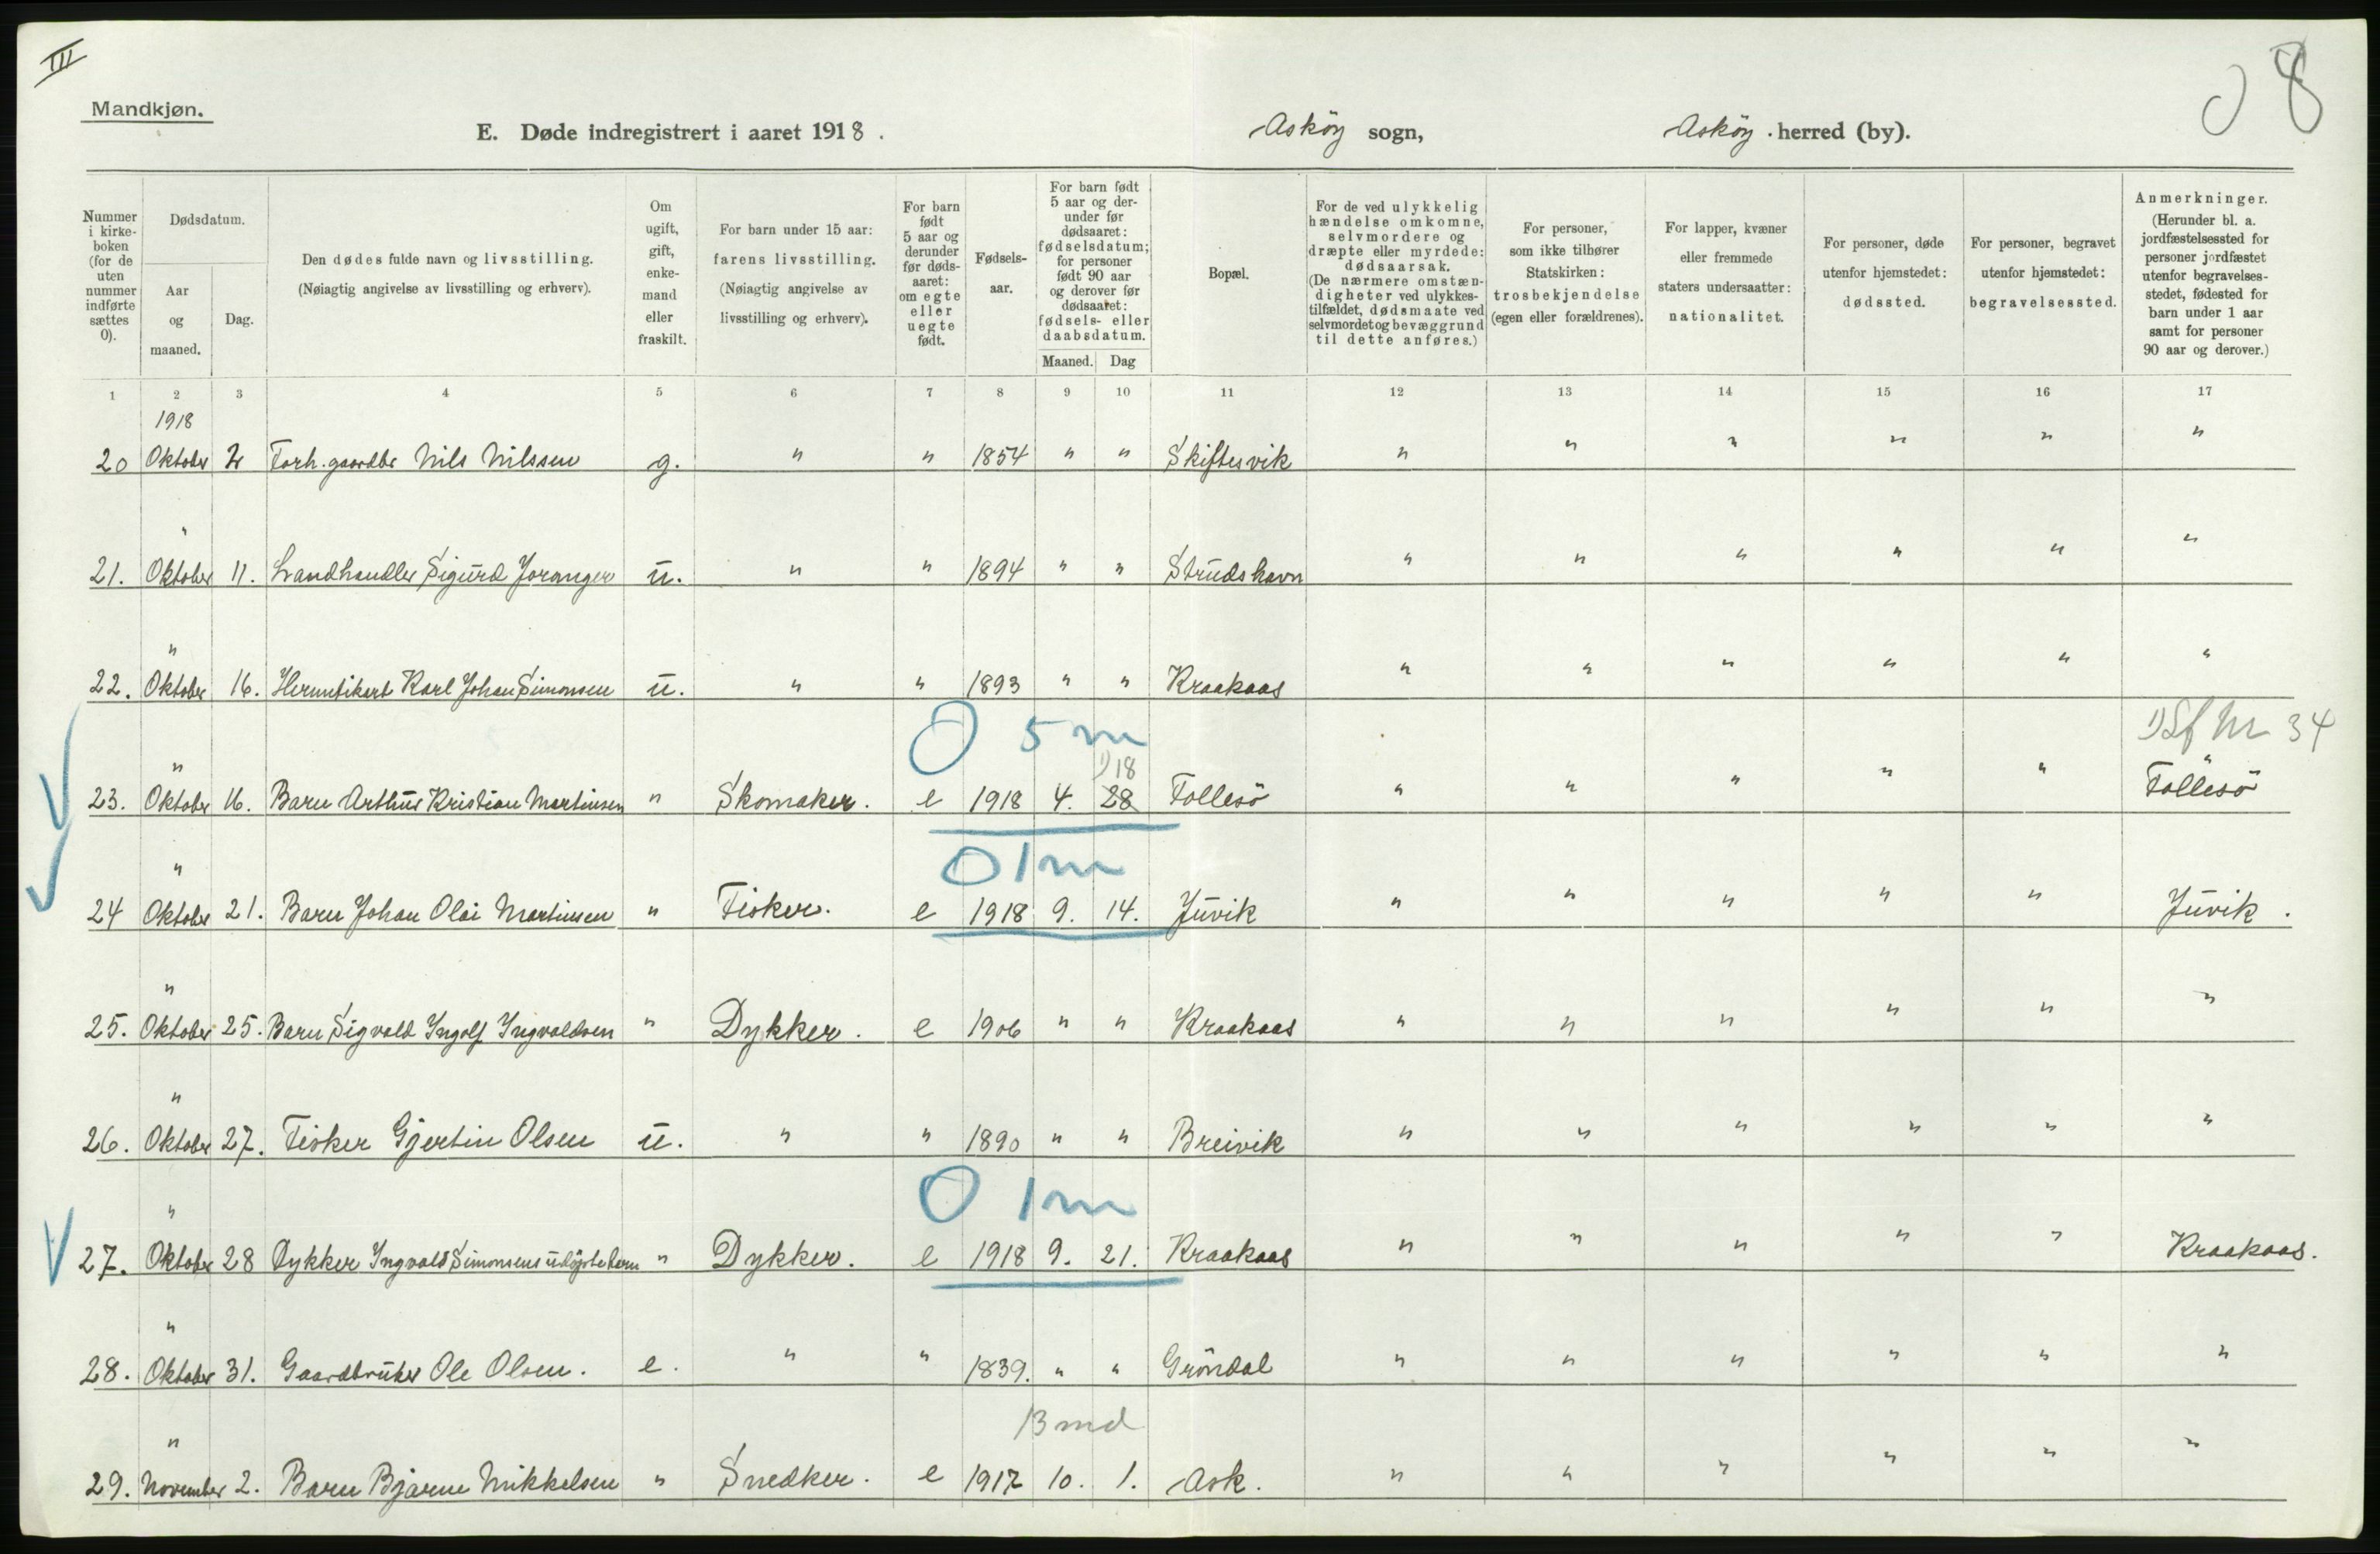 III
8
Mandkjøn.
E. Døde indregistrert i aaret 1918. Askøy sogn, Askøy herred (by).
Nummer i kirke-boken (for de uten nummer indførte sættes 0).
Dødsdatum.
Aar og maaned.
Dag.
Den dødes fulde navn og livsstilling.
(Nøiagtig angivelse av livsstilling og erhverv).
Om ugift, gift, enke-mand eller fraskilt.
For barn under 15 aar: farens livsstilling. (Nøiagtig angivelse av livsstilling og erhverv).
For barn født 5 aar og derunder før døds-aaret: om egte eller uegte født.
Fødsels-aar.
For barn født 5 aar og der-under før dødsaaret: fødselsdatum; for personer født 90 aar og derover før dødsaaret: fødsels- eller daabsdatum.
Maaned. Dag
Bopæl.
For de ved ulykkelig hændelse omkomne, selvmordere og dræpte eller myrdede: dødsaarsak. (De nærmere omstæn-digheter ved ulykkes-tilfældet, dødsmaate ved selvmordet og bevæggrund til dette anføres.)
For personer, som ikke tilhører Statskirken: trosbekjendelse (egen eller forældrenes).
For lapper, kvæner eller fremmede staters undersaatter: nationalitet.
For personer, døde utenfor hjemstedet: dødssted.
For personer, begravet utenfor hjemstedet: begravelsessted.
Anmerkninger. (Herunder bl. a. jordfæstelsessted for personer jordfæstet utenfor begravelses-stedet, fødested for barn under 1 aar samt for personer 90 aar og derover.)
1 2 3 4 5 6 7 8 9 10 11 12 13 14 15 16 17
1918
20 Oktober 2 Forh. gaardbr Nils Nilssen g. " " 1854 " " Skiftesvik " " " " " "
"
21. Oktober 11. Landhandler Sigurd Joranger u. " " 1894 " " Strudshavn " " " " " "
"
22. Oktober 16. Hermetikarb Karl Johan Simonsen u. " " 1893 " " Kraakaas " " " " " "
0 5 m
1) 18
34
"
23. Oktober 16. Barn Arthur Kristian Martinsen " Skomaker. e 1918 4. 28 Follesö " " " " " Follesö
0 1 m
"
24 Oktober 21. Barn Johan Olai Martinsen " Fisker. e 1918 9. 14. Juvik " " " " " Juvik.
"
25. Oktober 25. Barn Sigvald Ingolf Ingvaldsen " Dykker. e 1906 " " Kraakaas " " " " " "
"
26. Oktober 27. Fisker Gjertin Olsen u. " " 1890 " " Breivik " " " " " "
0 1 m
"
27. Oktober 28 Dykker Ingvald Simonsens udöpte barn " Dykker. e 1918 9. 21. Kraakaas " " " " " Kraakaas.
"
28. Oktober 31. Gaardbruker Ole Olsen. e. " " 1839. " " Gröndal " " " " " "
13 md
"
29. November 2. Barn Bjarne Mikkelsen " Snedker. e 1917 10. 1. Ask. " " " " " "